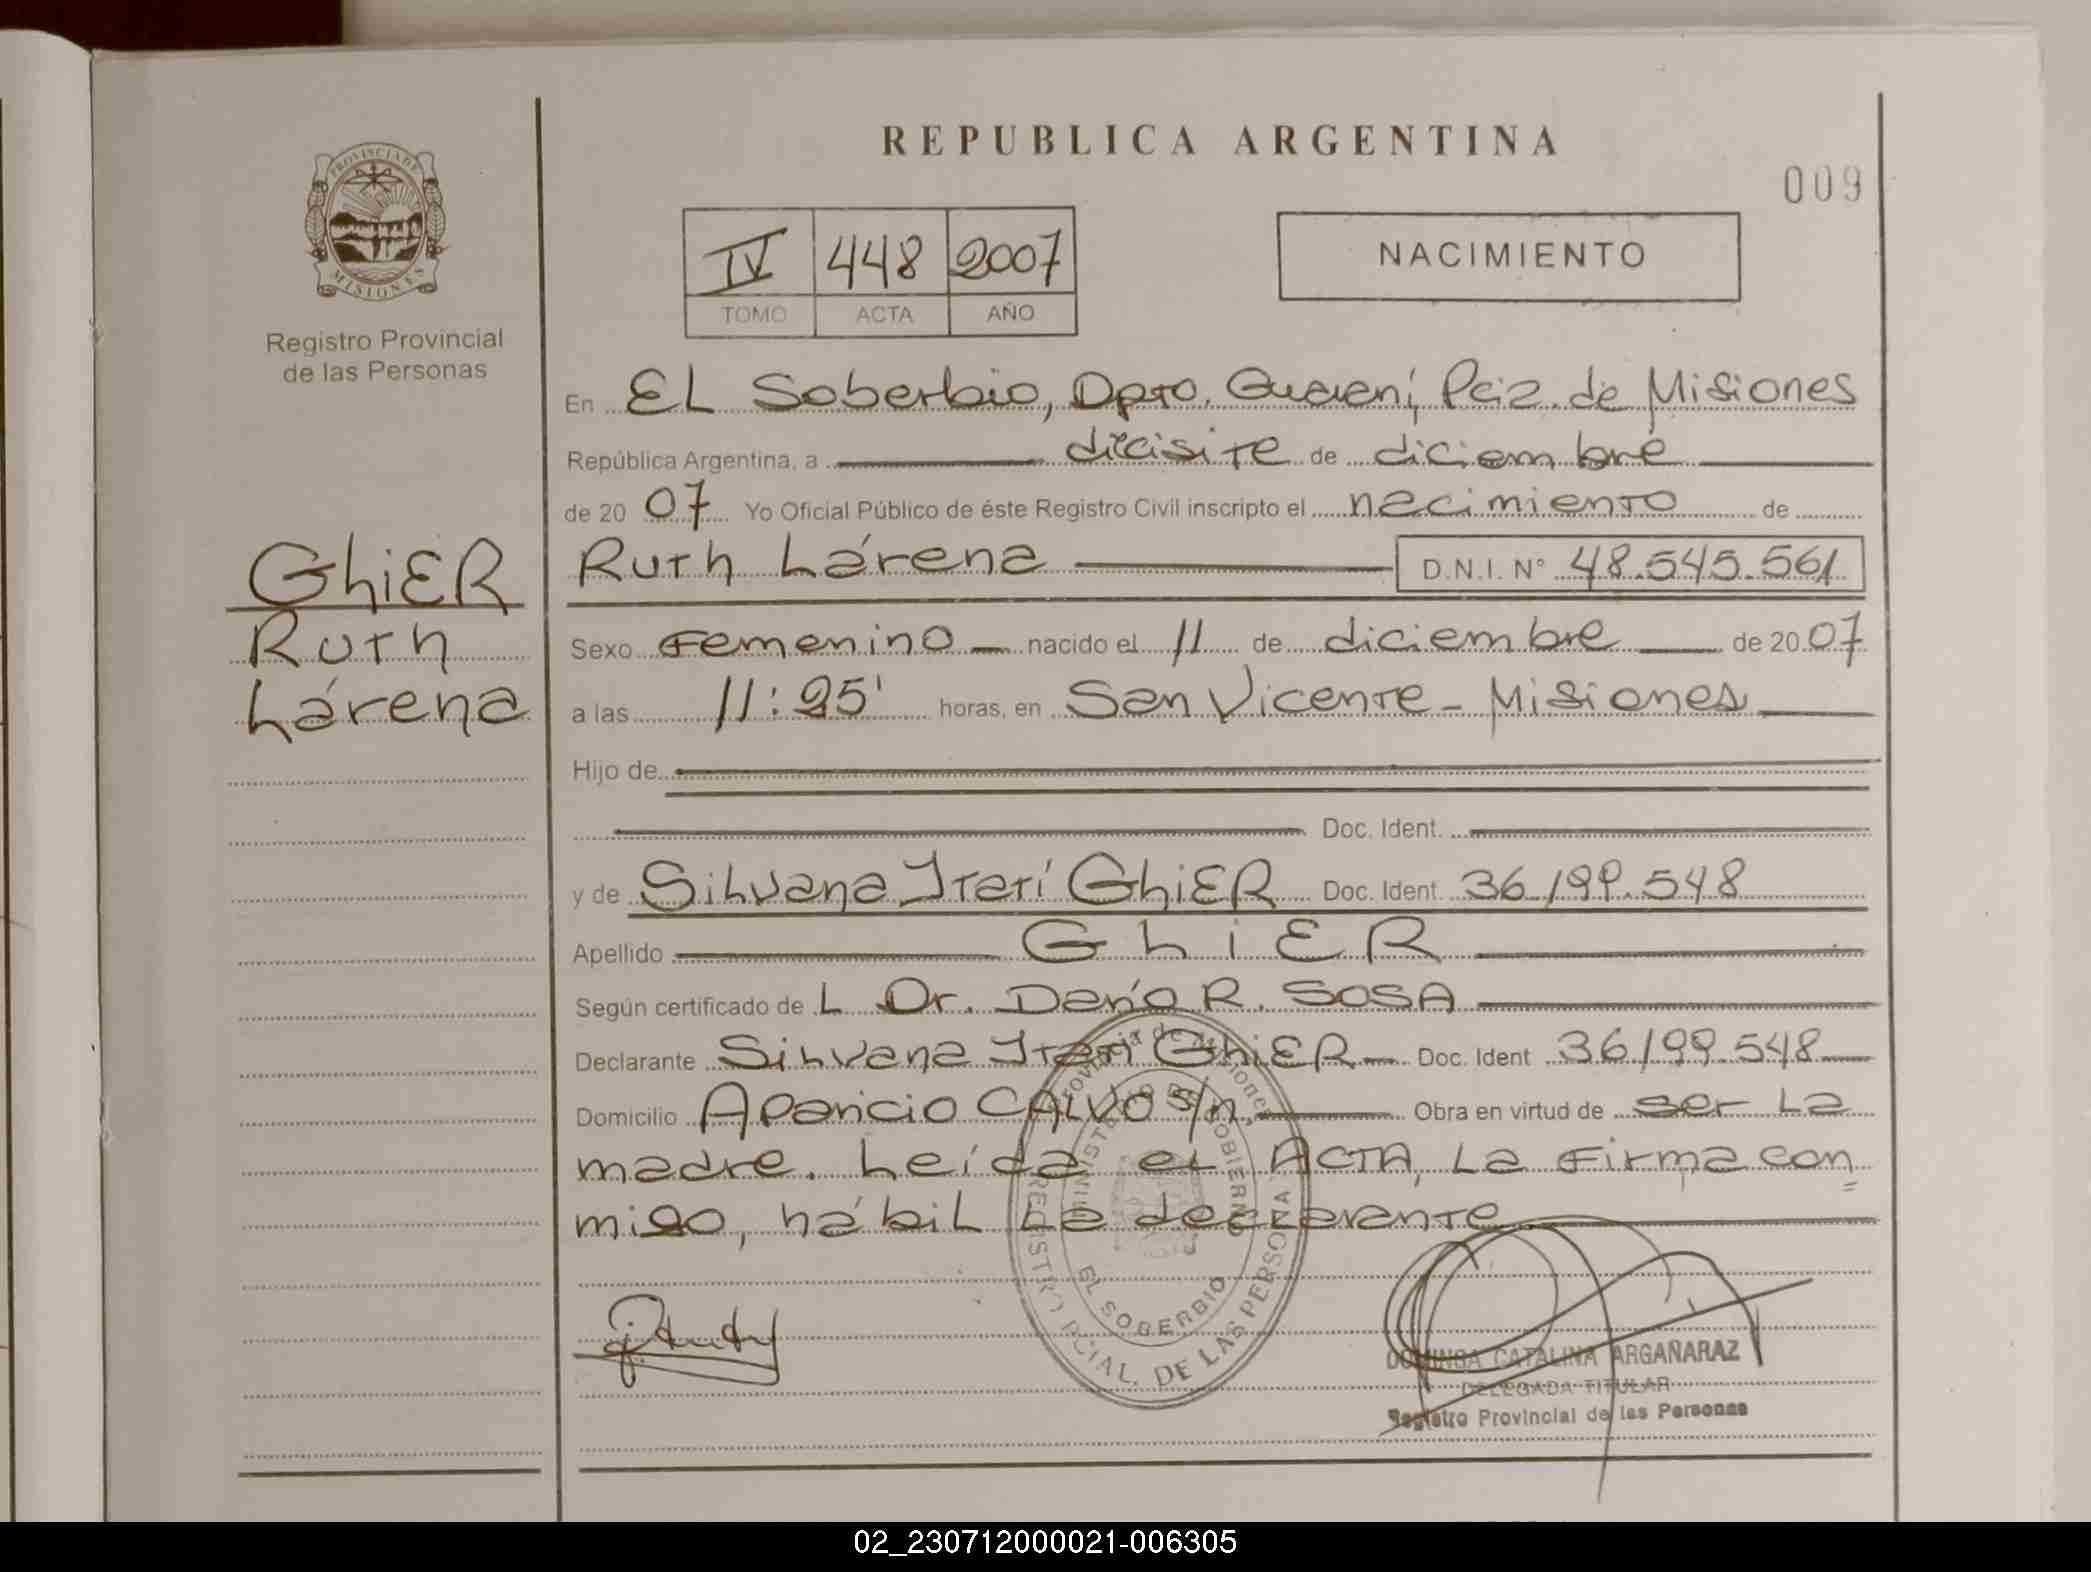 REPUBLICA ARGENTINA
009
PROVINCIA DE MISIONES
Registro Provincial
de las Personas
IV 448 2007
TOMO ACTA AÑO
NACIMIENTO
En EL Soberbio, Dpto. Guaraní, Pcia. de Misiones
República Argentina, a dicisite de diciembre
de 2007 Yo Oficial Público de éste Registro Civil inscripto el nacimiento de
GhiER
Ruth
Lárena
Ruth Lárena D.N.I. N° 48.545.561
Sexo Femenino nacido el 11 de diciembre de 2007
a las 11:25' horas, en San Vicente - Misiones
Hijo de
Doc. Ident.
y de Silvana Itatí GhiER Doc. Ident. 36.199.548
Apellido GhiER
Según certificado de L Dr. Darío R. SOSA
Declarante Silvana Itatí GhiER Doc. Ident 36.199.548
Domicilio Aparicio CALVO s/n, Obra en virtud de ser La
madre. Leída el ACTA, La Firma con
migo, hábil La declarante
Provincia de Misiones
MINISTERIO DE GOBIERNO
EL SOBERBIO
REGISTRO PCIAL. DE LAS PERSONAS
DOMINGA CATALINA ARGAÑARAZ
DELEGADA TITULAR
Registro Provincial de las Personas
02_230712000021-006305